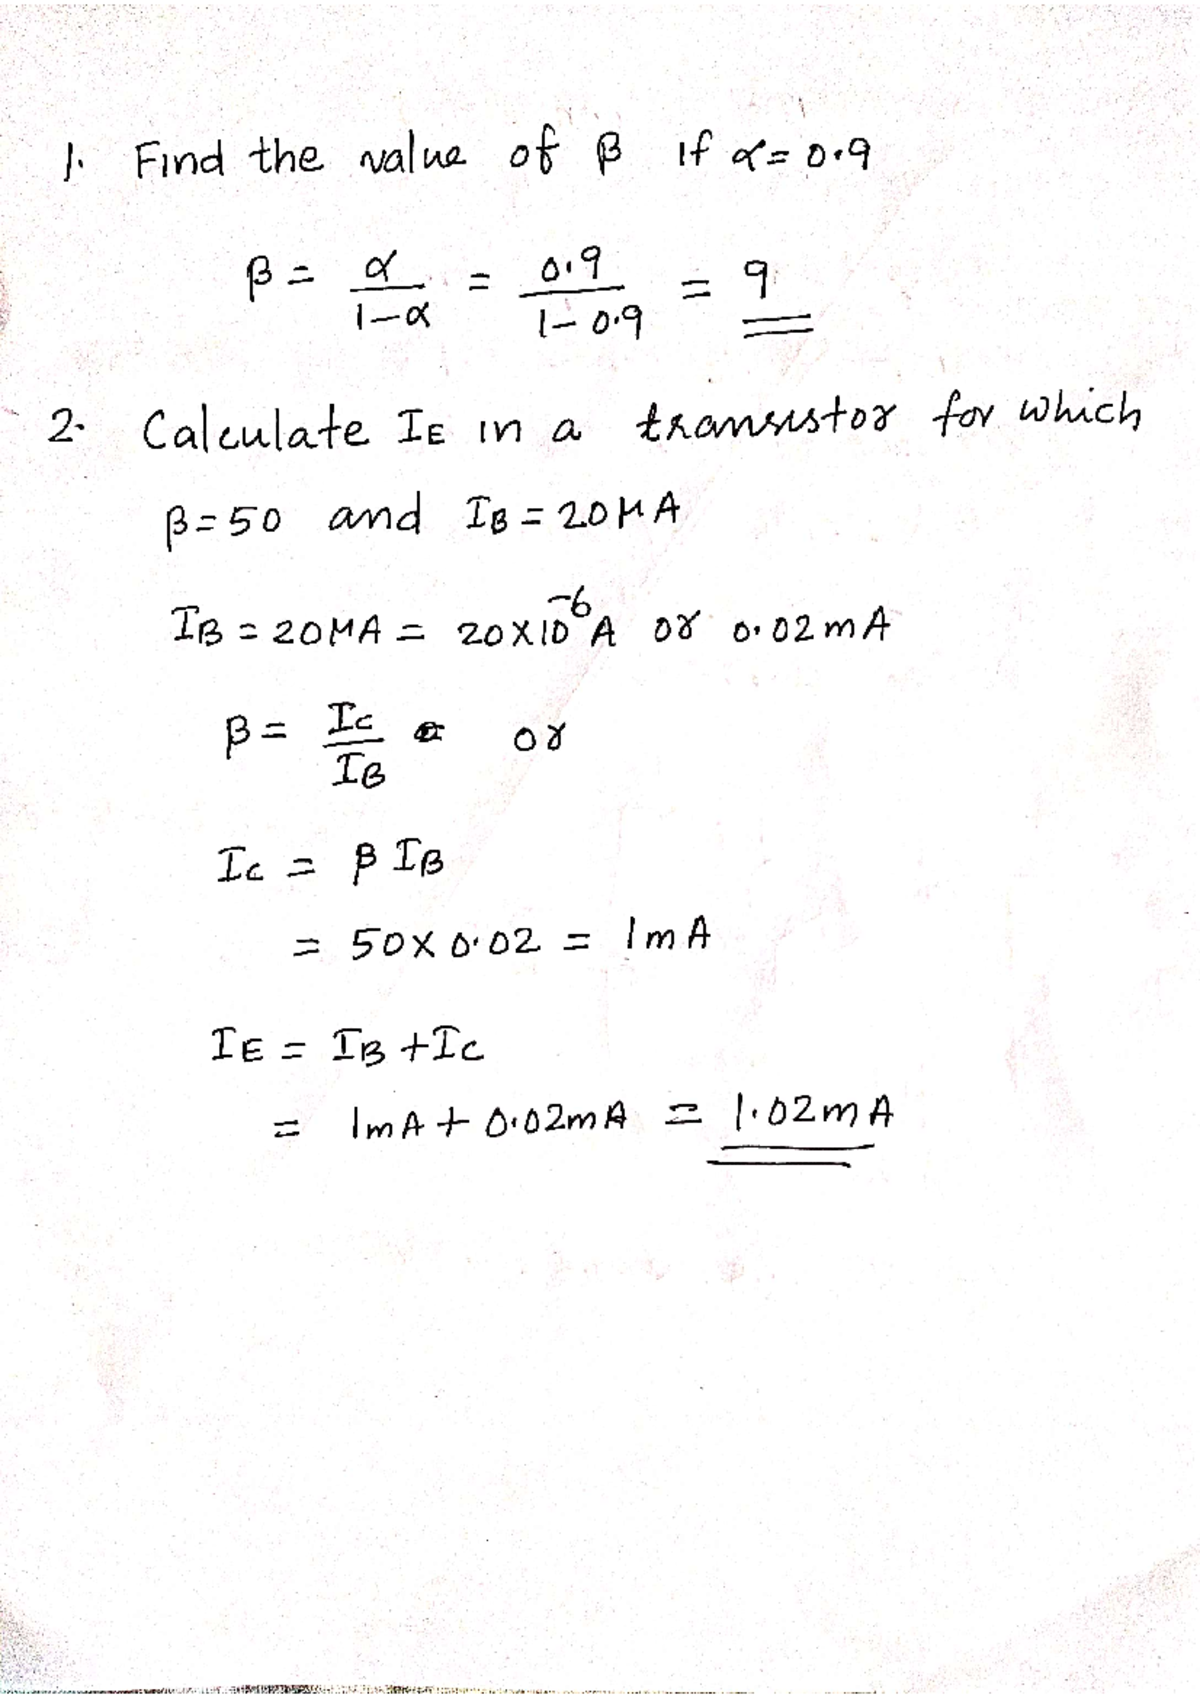 1. Find the value of β if α = 0.9
β = α / 1-α = 0.9 / 1-0.9 = 9
2. Calculate IE in a transistor for which
β = 50 and IB = 20 μA
IB = 20 μA = 20 X 10⁻⁶ A or 0.02 mA
β = IC / IB or
IC = β IB
= 50 X 0.02 = 1 mA
IE = IB + IC
= 1 mA + 0.02 mA = 1.02 mA